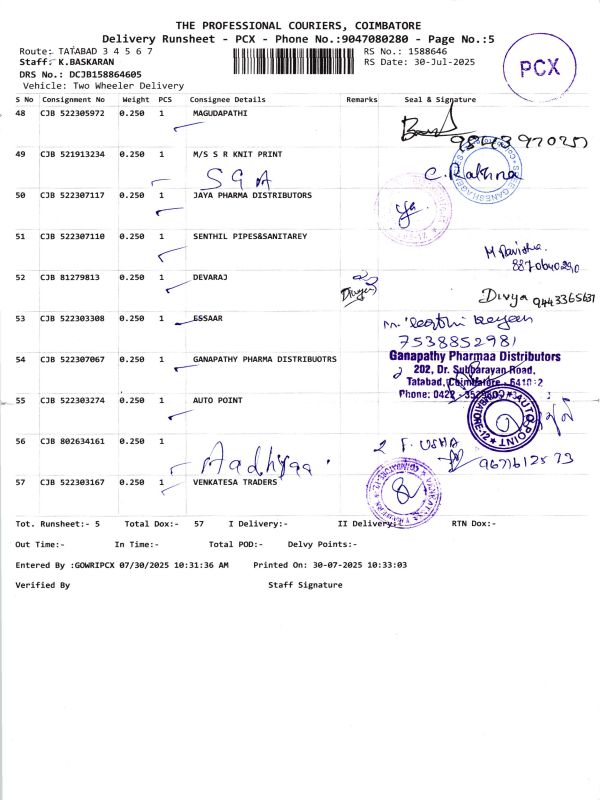 THE PROFESSIONAL COURIERS, COIMBATORE
Delivery Runsheet - PCX - Phone No.:9047080280 - Page No.:5
Route:- TATABAD 3 4 5 6 7
RS No.: 1588646
Staff:- K.BASKARAN
RS Date: 30-Jul-2025
DRS No.: DCJB158864605
Vehicle: Two Wheeler Delivery
PCX
S No Consignment No Weight PCS Consignee Details Remarks Seal & Signature
48 CJB 522305972 0.250 1 MAGUDAPATHI
49 CJB 521913234 0.250 1 M/S S R KNIT PRINT
SGA
C. Rathna
50 CJB 522307117 0.250 1 JAYA PHARMA DISTRIBUTORS
51 CJB 522307110 0.250 1 SENTHIL PIPES&SANITAREY
M Pavithra.
8870640290
52 CJB 81279813 0.250 1 DEVARAJ
Divya
Divya 9443365631
53 CJB 522303308 0.250 1 ESSAAR
7538852981
54 CJB 522307067 0.250 1 GANAPATHY PHARMA DISTRIBUOTRS
Ganapathy Pharmaa Distributors
202, Dr. Subbarayan Road,
Tatabad, Coimbatore - 641012
Phone: 0422 -
55 CJB 522303274 0.250 1 AUTO POINT
AUTO POINT
56 CJB 802634161 0.250 1
Aadhyaa.
F. USHA
57 CJB 522303167 0.250 1 VENKATESA TRADERS
Tot. Runsheet:- 5 Total Dox:- 57 I Delivery:- II Delivery:- RTN Dox:-
Out Time:- In Time:- Total POD:- Delvy Points:-
Entered By :GOWRIPCX 07/30/2025 10:31:36 AM Printed On: 30-07-2025 10:33:03
Verified By Staff Signature